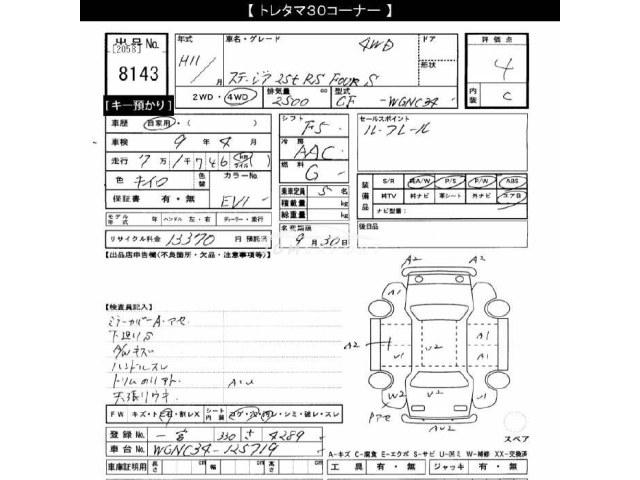 【 トレタマ30コーナー 】
出品No. [2058] 8143
年式 H11 月
車名・グレード ステージア 25t RS FOUR S 4WD
ドア 形状
評価点 4
内装 C
2WD・4WD
排気量 2500 cc
型式 GF -WGNC34
【キー預かり】
車歴 自家用・( )
車検 9年 4月
走行 7万1千746 (km マイル)
色 キイロ 色替 カラーNo.
保証書 有・無 EV1
シフト F5
冷房 AAC
燃料 G
乗車定員 5 名
積載量 kg
総重量 kg
セールスポイント
ルーフレール
装備品 S/R 純A/W P/S P/W ABS
純TV 純ナビ 革シート 外ナビ エアB
ナビ型番:
モデル年式 年 ハンドル 左・右 ディーラー・並行
リサイクル料金 13370 円 預託済
名変期限 9月30日
後日品
【出品店申告欄(不良箇所・欠品・注意事項等)】
【検査員記入】
ミラーカバーA・アセ
下廻りS
ダッシュキズ
ハンドルスレ
A2 A2
A1 A1
A2 U1 U2 A1 U1
W2 V2 U2
Pアセ AU2
FW キズ・トビ石・割レX シート内装 コゲ・穴・汚レ・シミ・破レ・スレ
登録No. 一宮 330 さ 4289
車台No. WGNC34-125719
スペア
A-キズ C-腐食 E-エクボ S-サビ U-凹ミ W-補修 XX-交換済
車庫証明用 長さ cm 幅 cm 高さ cm
工具 有・無 ジャッキ 有・無